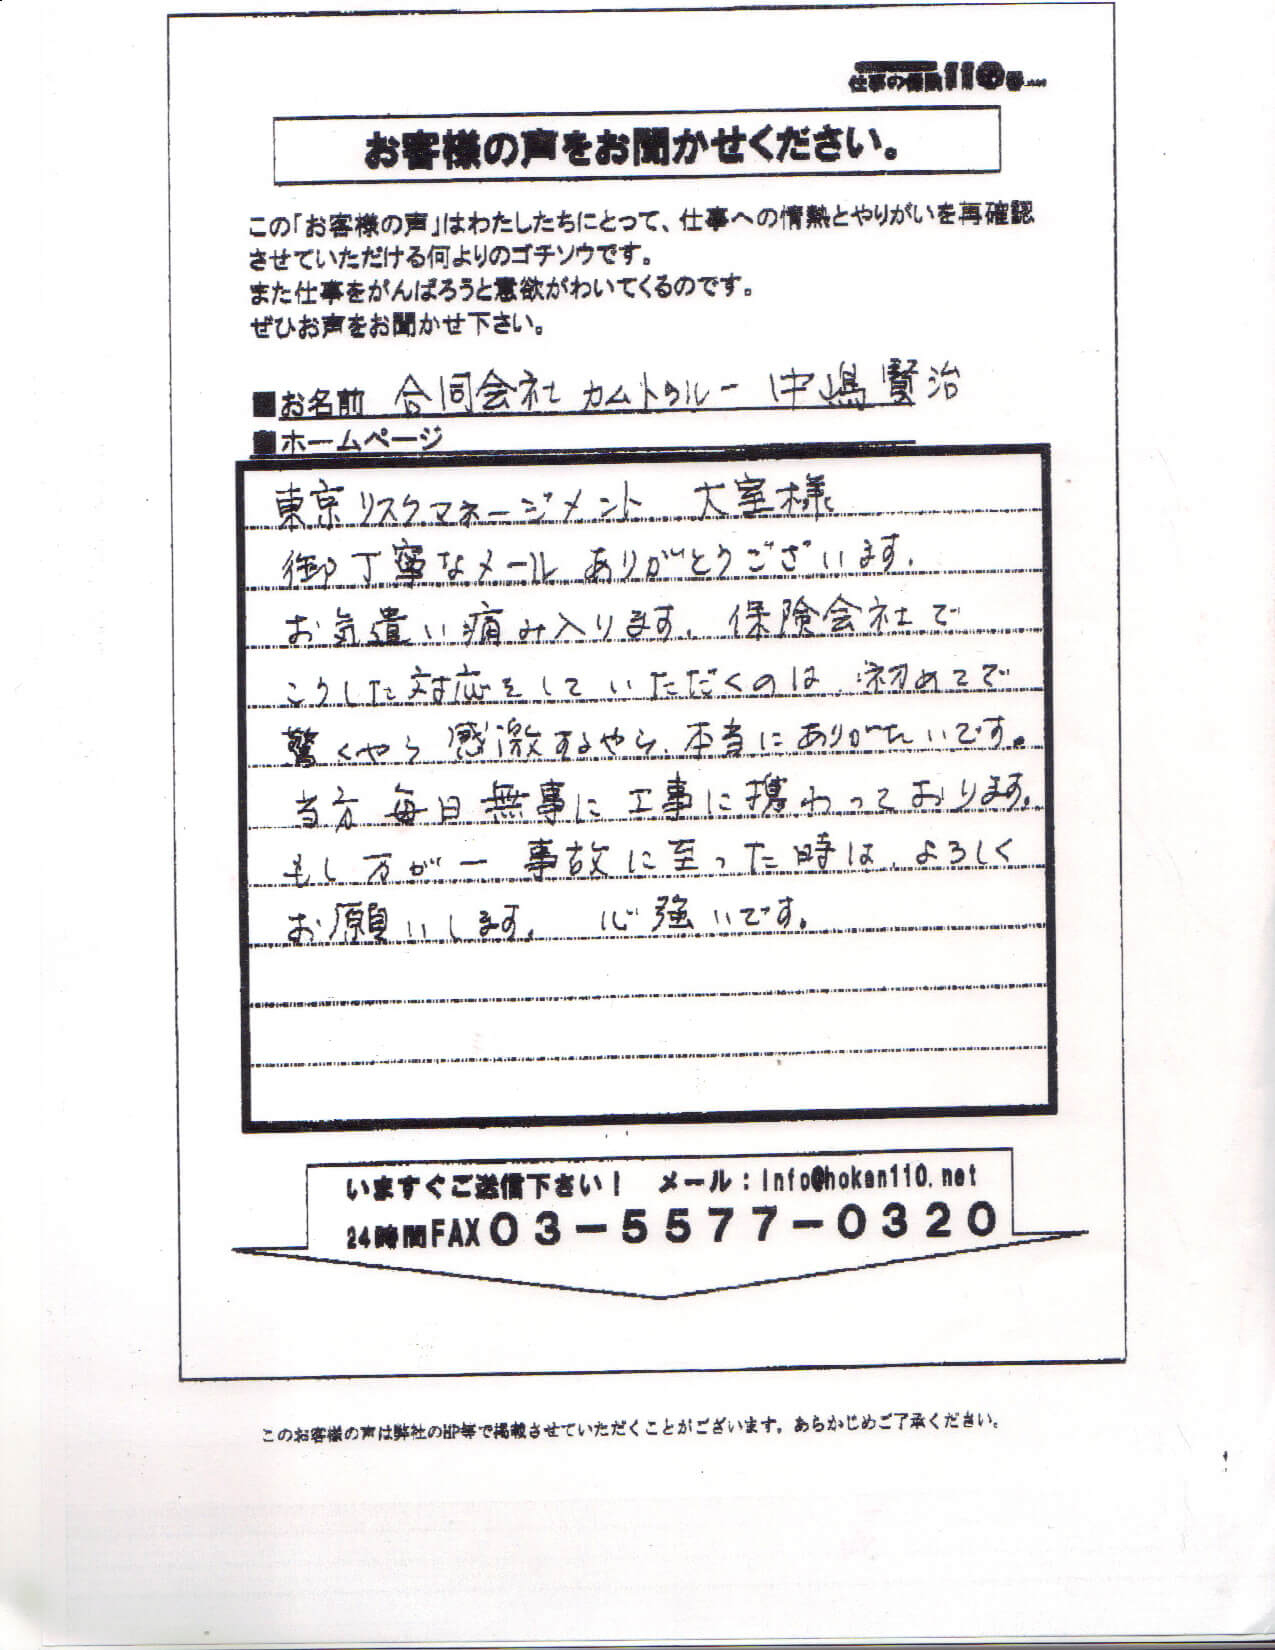 仕事の保険110番
お客様の声をお聞かせください。
この「お客様の声」はわたしたちにとって、仕事への情熱とやりがいを再確認
させていただける何よりのゴチソウです。
また仕事をがんばろうと意欲がわいてくるのです。
ぜひお声をお聞かせ下さい。
■お名前 合同会社 カムトゥルー 中嶋賢治
■ホームページ
東京リスクマネージメント 大室様
御丁寧なメール ありがとうございます。
お気遣い痛み入ります。保険会社で
こうした対応をしていただくのは、初めてで
驚くやら感激するやら、本当にありがたいです。
当方 毎日無事に工事に携わっております。
もし万が一 事故に至った時は、よろしく
お願いします。 心強いです。
いますぐご送信下さい! メール:info@hoken110.net
24時間FAX03-5577-0320
このお客様の声は弊社のHP等で掲載させていただくことがございます。あらかじめご了承ください。